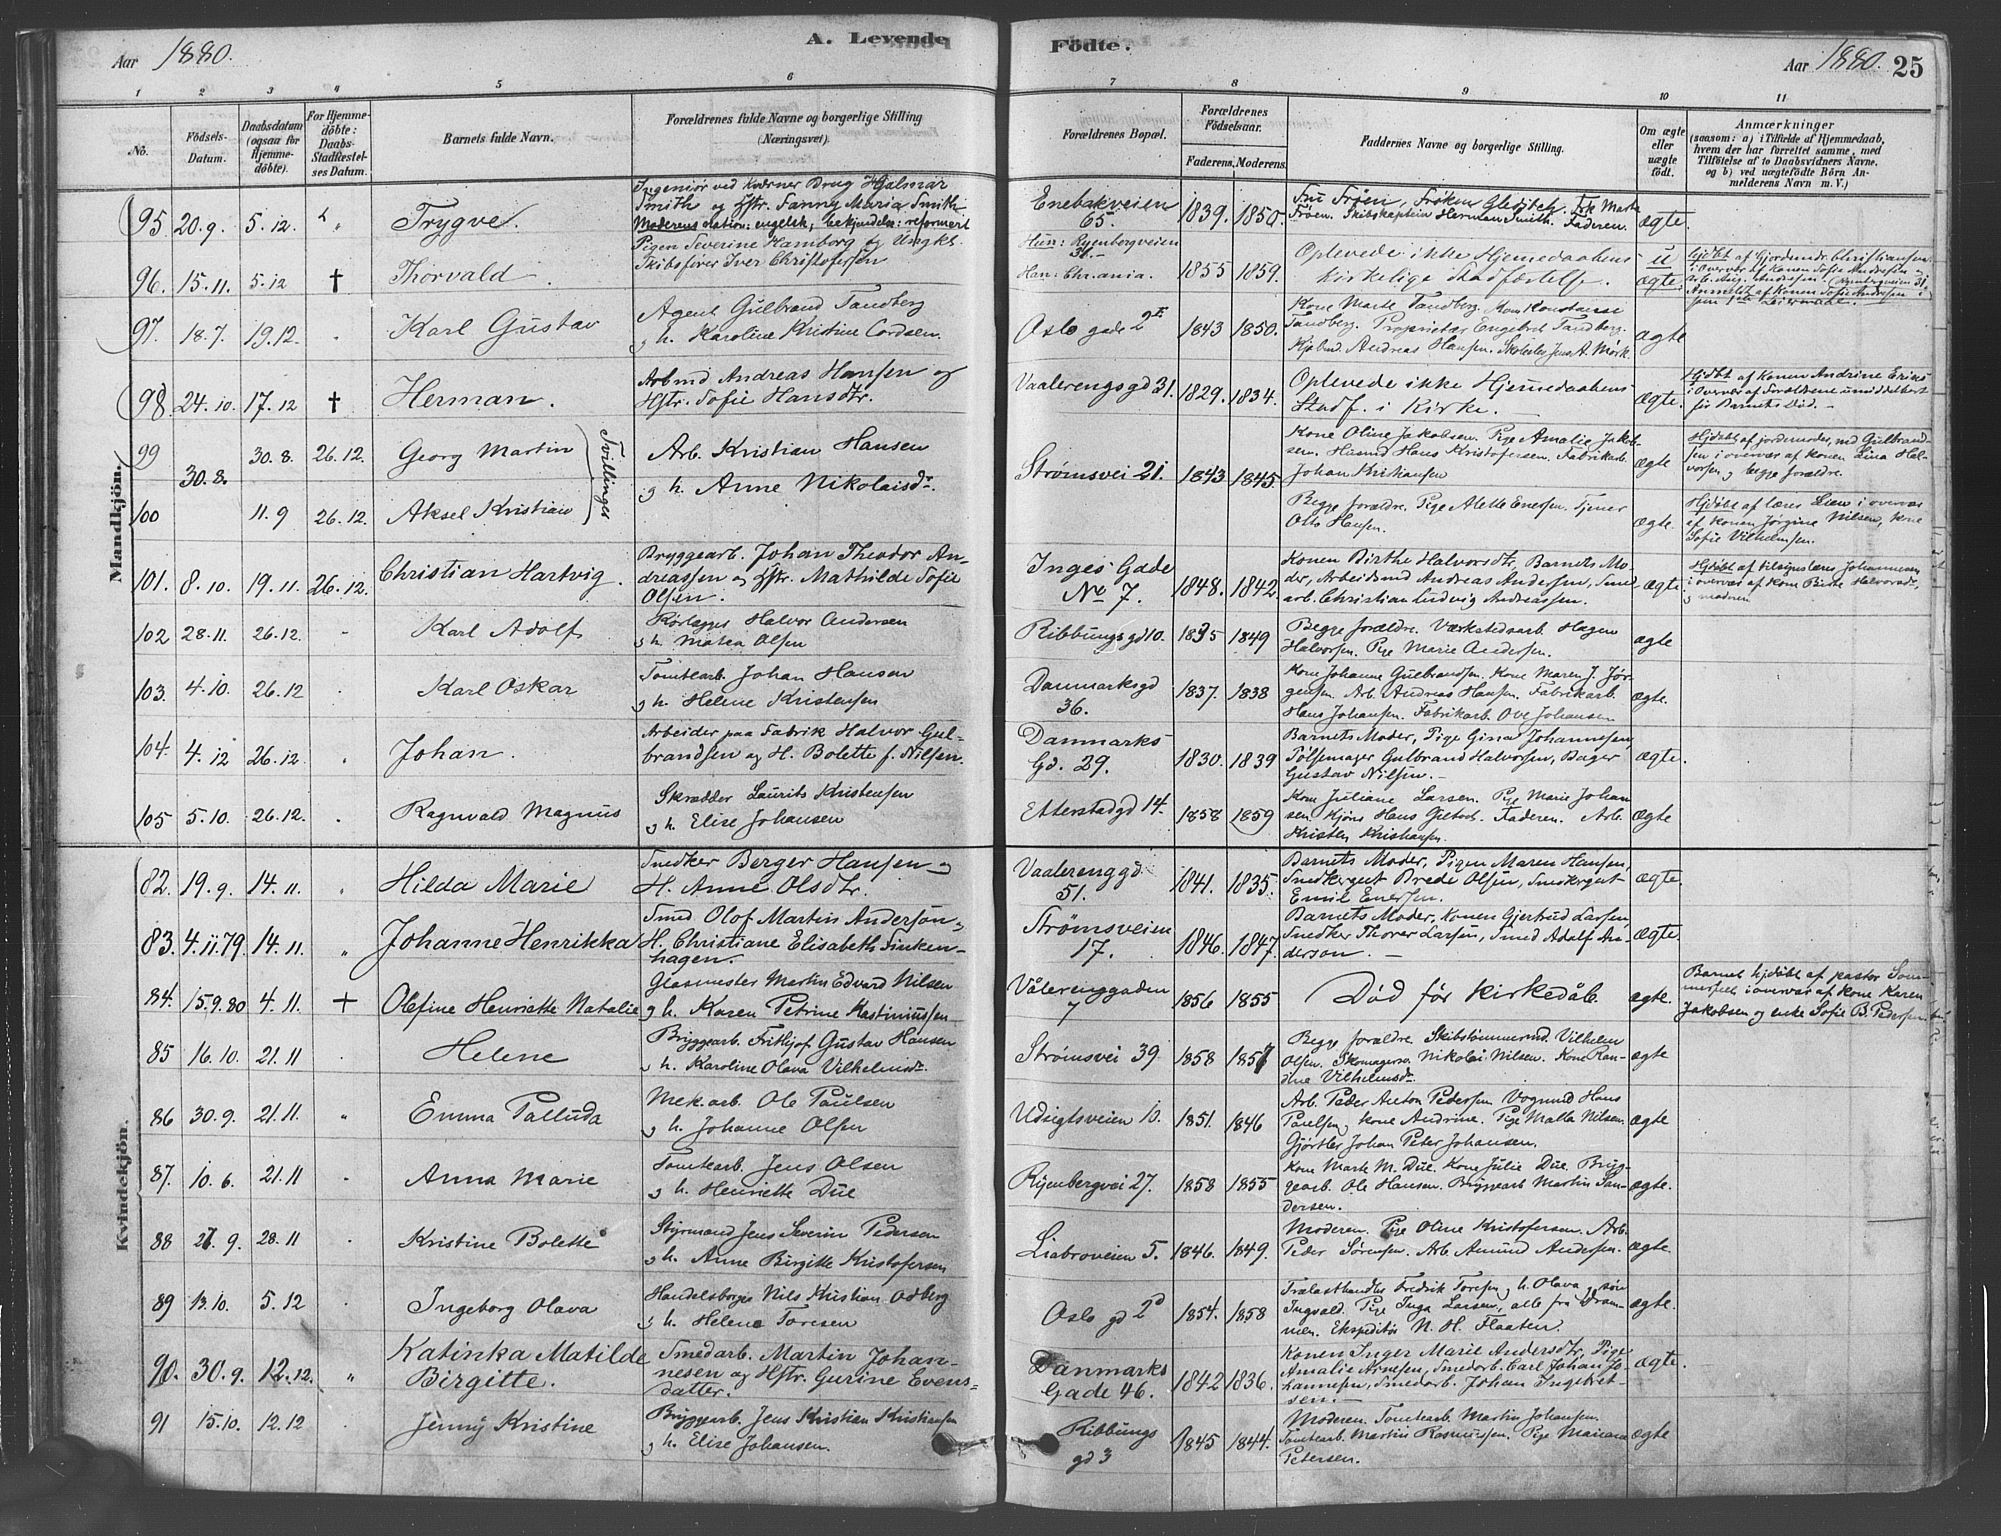 Aar 1880. A. Levende Födte. Aar 1880. 25
1 2 3 4 5 6 7 8 9 10 11
No. Födsels-Datum. Daabsdatum (ogsaa for Hjemmedöbte). For Hjemmedöbte: Daabs-Stadfæstelses Datum. Barnets fulde Navn. Forældrenes fulde Navne og borgerlige Stilling (Næringsvei). Forældrenes Bopæl. Forældrenes Födselsaar. Faderens. Moderens. Faddernes Navne og borgerlige Stilling. Om ægte eller uægte födt. Anmærkninger (saasom: a) i Tilfælde af Hjemmedaab, hvem der har forrettet samme, med Tilföielse af to Daabsvidners Navne, og b) ved uægtefödte Börn Anmelderens Navn m. V.)
Mandkjön.
95 20.9. 5.12. " Trygve. Ingeniør ved Kværner Brug Hjalmar
Smith og Hstr. Fanny Maria Smith
Moderens nation: engelsk; bekjendelse: reformert
Enebakveien 65. 1839. 1850. Fru Frøen, Frøken Gleditch,
Frøen. Skibskaptein Herman Smith. Faderen. ægte.
96. 15.11. 5.12 † Thorvald. Pigen Severine Hamborg og Ungkl.
Skibsfører Iver Christofersen
Hun: Ryenbergveien 31. Han: Chrania. 1855 1859. Oplevede ikke Hjemmedaabens
kirkelige Stadfæstelse. u ægte.
97. 18.7. 19.12. " Karl Gustav Agent Gulbrand Tandberg
g h. Karoline Kristine Cordsen.
Oslo gade 2 1843 1850. Kone Marte Tandberg. Kone Konstanse
Tandberg. Proprietær Engebret Tandberg.
Kjøbmd. Andreas Hansen. Skolebst. Jens A. Mørk. ægte
98. 24.10. 17.12 † Herman. Arbmd Andreas Hansen og
Hstr. Sofie Hansdtr.
Vaalerengsgd 31. 1829. 1834. Oplevede ikke Hjemmedaabens
Stadf. i Kirke. ægte. Hjdøbt af Konen Andrine Eriks
i Overvær af Forældrene umiddelbart
før Barnets Død.
99 30.8. 30.8. 26.12. Georg Martin Tvillinger Arb. Kristian Hansen
g h. Anne Nikolaisdr.
Strømsvei 21. 1843 1845. Kone Oline Jakobsen. Pige Amalie Jakobsen.
Husmd Hans Kristofersen. Fabrikarb.
Johan Kristiansen ægte Hjdøbt af jordemoder, md Gulbrandsen
i overvær af konen Lina Halvorsen
og begge forældre.
100 11.9 26.12. Aksel Kristian Begge forældre. Pige Alette Enersen. Tjener
Otto Hansen. ægte. Hjdøbt af lærer Lien i overvær
af konen Jørgine Nilsen, kone
Sofie Vilhelmsen.
101. 8.10. 19.11. 26.12. Christian Hartvig. Bryggearb. Johan Theodor Andreassen
og Hstr. Mathilde Sofie
Olsen.
Inges Gade No 7. 1848. 1842. Konen Birthe Halvorsdtr, Barnets Moder,
Arbeidsmd Andreas Andersen, Smedarb.
Christian Ludvig Andreassen. ægte. Johannesen
i overvær af kone Birthe Halvorsd.
g moderen
102 28.11. 26.12. " Karl Adolf Halvor Andersen
g h. Matea Olsen
Ribbungsgd 10. 1835 1849 Begge forældre. Værkstedsarb. Hagen
Halvorsen. Pige Marie Andersen. ægte
103. 4.10. 26.12 " Karl Oskar Tomtearb. Johan Hansen
g h. Helene Kristensen
Danmarksgd 36. 1837. 1838 Kone Johanne Gulbrandsen. Kone Maren J. Jørgensen.
Arb. Andreas Hansen. Fabrikarb.
Hans Johansen. Fabrikarb. Ove Johansen ægte.
104. 4.12 26.12. " Johan. Arbeider paa Fabrik Halvor Gulbrandsen
og H. Bolette f. Nilsen.
Danmarks Gd. 29. 1830. 1839 Barnets Moder, Pige Gina Johannesen,
Pølsemager Gulbrand Halvorsen, Bager
Gustav Nilsen. ægte.
105 5.10. 26.12. " Ragnvald Magnus Skrædder Laurits Kristensen
g h. Elise Johansen
Etterstadgd 14. 1858 1859 Kone Juliane Larsen. Pige Marie Johansen
Faderen. Arb.
Kristen Kristiansen. ægte
Kvindekjön.
82. 19.9. 14.11. " Hilda Marie Snedker Berger Hansen
H. Anne Olsdtr.
Vaalerenggd 51. 1841. 1835. Barnets Moder, Pigen Maren Hansen,
Snedkersvt Brede Olsen, Snedkersvt
Emil Enersen. ægte.
83. 4.11.79. 14.11. " Johanne Henrikka Smed Olof Martin Anderson
H. Christiane Elisabeth Finkenhagen.
Strømsveien 17. 1846. 1847. Barnets Moder, Konen Gjertrud Larsen,
Snedker Thorer Larsen, Smed Adolf Anderson. ægte.
84. 15.9.80 4.11. † Olefine Henriette Natalie Glasmester Martin Edvard Nilsen
g h. Karen Petrine Rastinussen
Vålerenggaden 7 1856 1855 Død før kirkedåb ægte. Barnet hjdøbt af pastor Sommerfelt
i overvær af kone Karen
Jakobsen og enke Sofie B. Pedersen
85 16.10. 21.11 " Helene Bryggearb. Frithjof Gustav Hansen
g h. Karoline Olava Vilhelmsdr.
Strømsvei 39 1858 1857 Begge forældre. Skibstømmermd. Vilhelm
Olsen. Skomagersv. Nikolai Nilsen. Kone Randine
Vilhelmsdr. ægte
86 30.9. 21.11. " Emma Palluda Mek. arb. Ole Paulsen
g h. Johanne Olsen
Udsigtsveien 10. 1851. 1846 Arb. Peder Anton Pedersen. Vognmd Hans
Paulsen, kone Andrine. Pige Malla Nilsen.
Gjørtler Johan Peter Johansen. ægte
87. 10.6. 21.11 " Anna Marie Tomtearb. Jens Olsen
g h. Henriette Due
Ryenbergvei 27. 1858 1855 Kone Marte M. Due. Kone Julie Due. Bryggearb.
Ole Hansen. Bryggearb Martin Sandersen. ægte.
88 26.9. 28.11 " Kristine Bolette Styrmand Jens Severin Pedersen
g h. Anne Birgitte Kristofersen
Liabroveien 5. 1846. 1849. Moderen. Pige Oline Kristofersen. Arb.
Peder Sørensen. Arb. Amund Andersen. ægte.
89 13.10. 5.12 " Ingeborg Olava Handelsborger Nils Kristian Odberg
g h. Helene Toresen
Oslo gd 2 1854. 1858 Trælasthandler Fredrik Toresen, h. Olava, søn
Ingvald. Pige Inga Larsen, alle fra Drammen.
Ekspeditør N. H. Flaaten. ægte.
90. 30.9. 12.12. " Katinka Matilde
Birgitte. Smedarb. Martin Johannesen
og Hstr. Gurine Evensdatter.
Danmarks Gade 46. 1842 1836. Konen Inger Marie Andersdtr, Pige
Amalie Arnesen, Smedarb. Carl Johan Johannesen,
Smedarb. Johan Ingebretsen. ægte.
91 15.10. 12.12 " Jenny Kristine Bryggearb. Jens Kristian Kristiansen
g h. Elise Johansen.
Ribbungs gd 3 1845 1844. Moderen. Tomtearb. Martin Johansen.
Tomtearb. Martin Rasmussen. Pige
Petersen. ægte